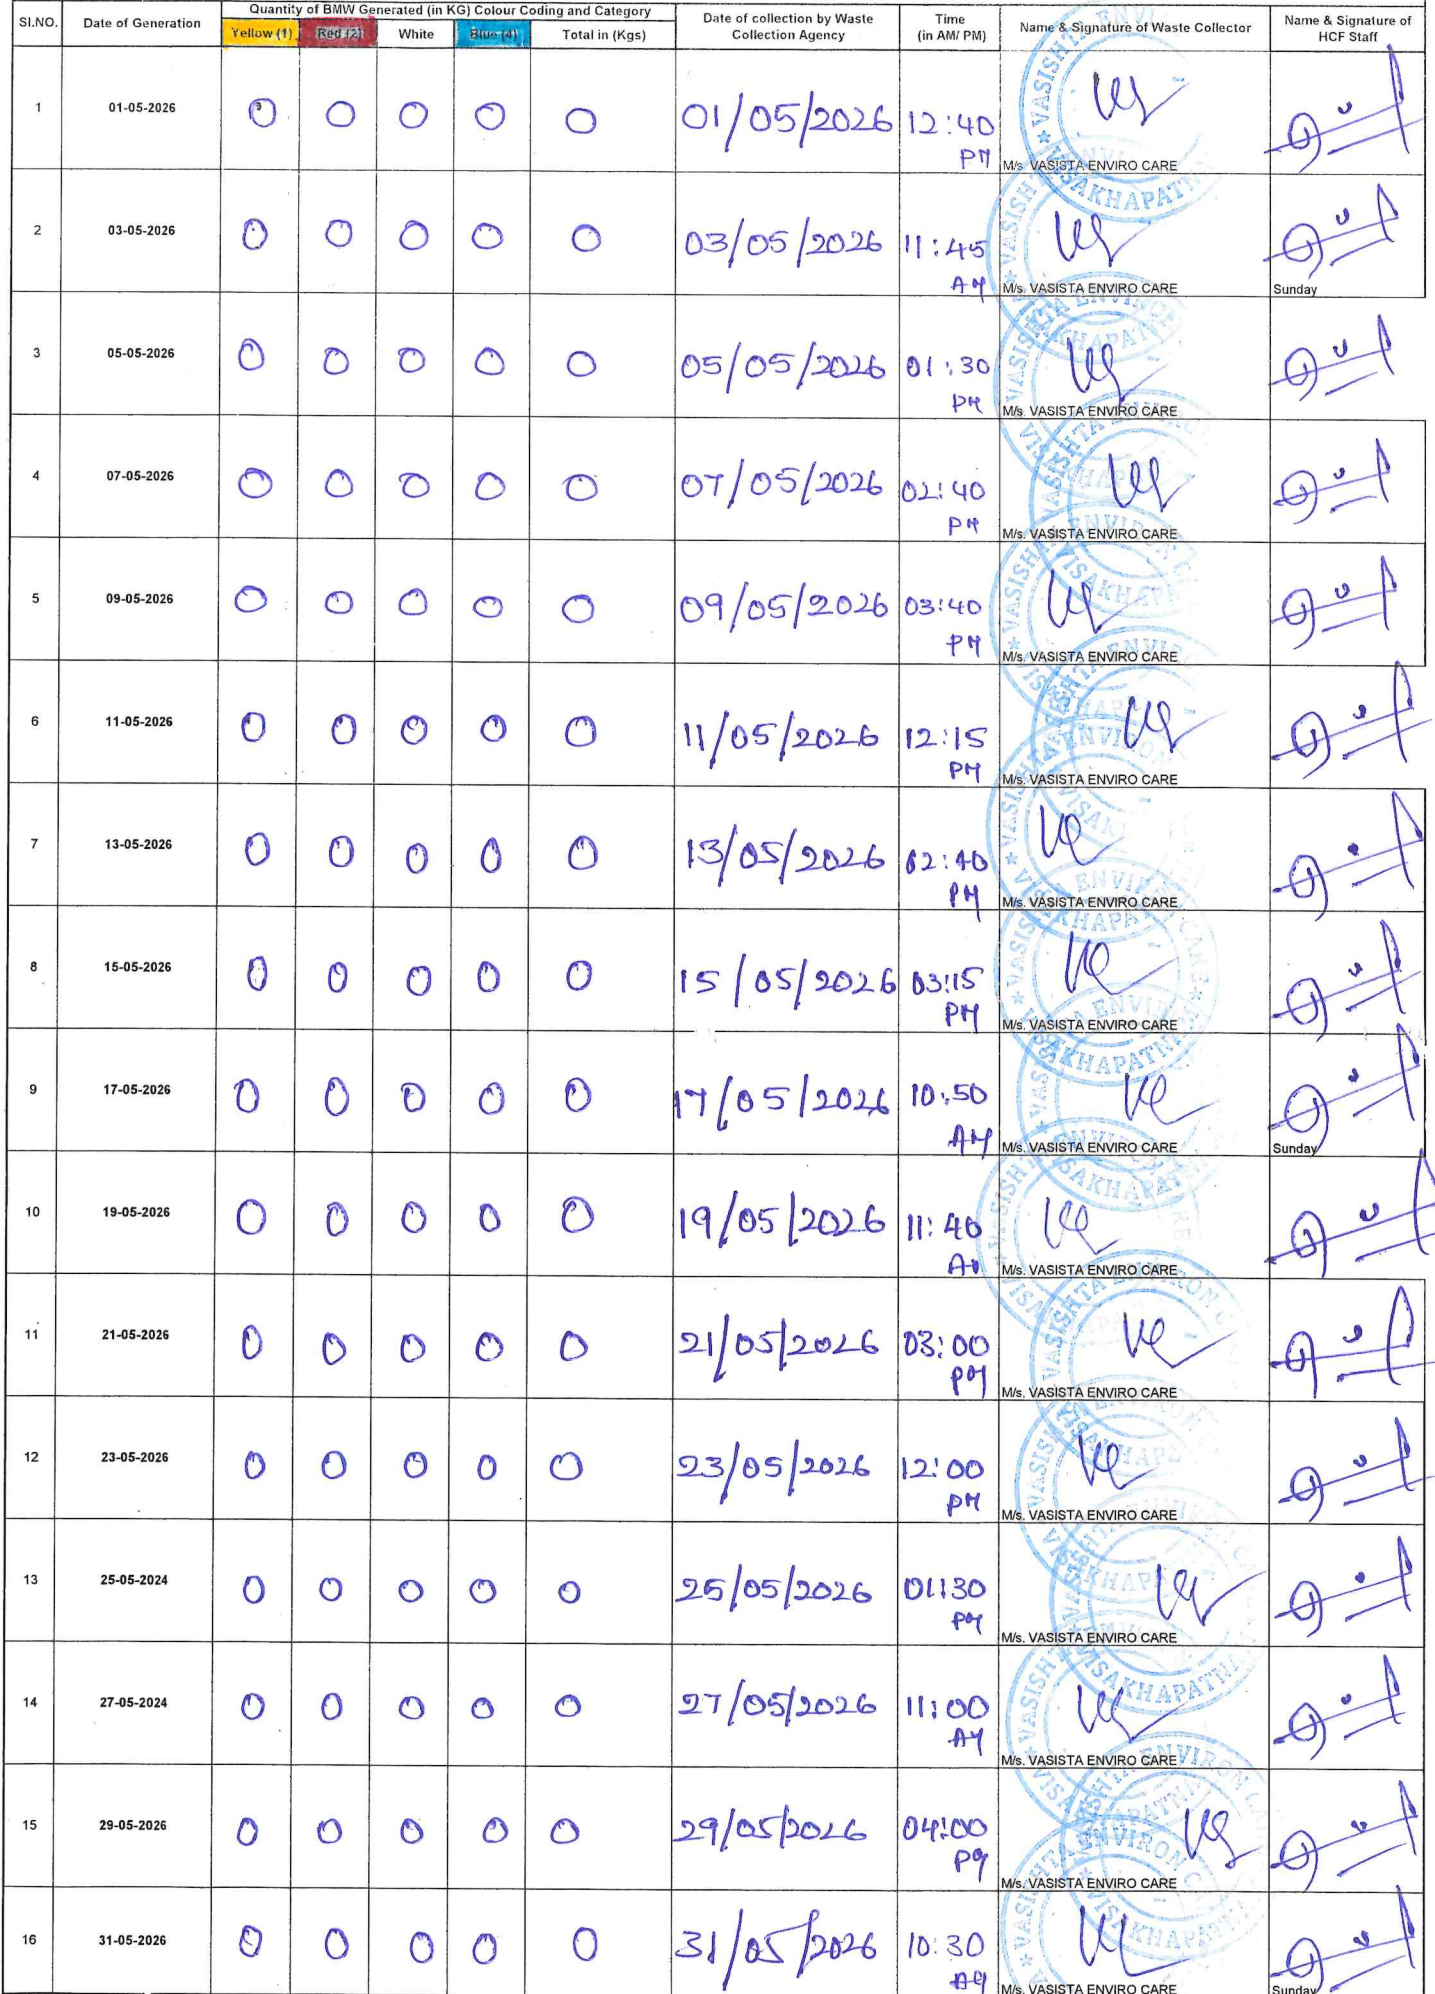 SI.NO. Date of Generation Quantity of BMW Generated (in KG) Colour Coding and Category Date of collection by Waste Collection Agency Time (in AM/ PM) Name & Signature of Waste Collector Name & Signature of HCF Staff
Yellow (1) Red (2) White Blue (4) Total in (Kgs)
1 01-05-2026 0 0 0 0 0 01/05/2026 12:40 PM M/s. VASISTA ENVIRO CARE
2 03-05-2026 0 0 0 0 0 03/05/2026 11:45 AM M/s. VASISTA ENVIRO CARE Sunday
3 05-05-2026 0 0 0 0 0 05/05/2026 01:30 PM M/s. VASISTA ENVIRO CARE
4 07-05-2026 0 0 0 0 0 07/05/2026 02:40 PM M/s. VASISTA ENVIRO CARE
5 09-05-2026 0 0 0 0 0 09/05/2026 03:40 PM M/s. VASISTA ENVIRO CARE
6 11-05-2026 0 0 0 0 0 11/05/2026 12:15 PM M/s. VASISTA ENVIRO CARE
7 13-05-2026 0 0 0 0 0 13/05/2026 02:40 PM M/s. VASISTA ENVIRO CARE
8 15-05-2026 0 0 0 0 0 15/05/2026 03:15 PM M/s. VASISTA ENVIRO CARE
9 17-05-2026 0 0 0 0 0 17/05/2026 10:50 AM M/s. VASISTA ENVIRO CARE Sunday
10 19-05-2026 0 0 0 0 0 19/05/2026 11:40 M/s. VASISTA ENVIRO CARE
11 21-05-2026 0 0 0 0 0 21/05/2026 03:00 PM M/s. VASISTA ENVIRO CARE
12 23-05-2026 0 0 0 0 0 23/05/2026 12:00 PM M/s. VASISTA ENVIRO CARE
13 25-05-2024 0 0 0 0 0 25/05/2026 01:30 PM M/s. VASISTA ENVIRO CARE
14 27-05-2024 0 0 0 0 0 27/05/2026 11:00 AM M/s. VASISTA ENVIRO CARE
15 29-05-2026 0 0 0 0 0 29/05/2026 04:00 PM M/s. VASISTA ENVIRO CARE
16 31-05-2026 0 0 0 0 0 31/05/2026 10:30 AM M/s. VASISTA ENVIRO CARE Sunday